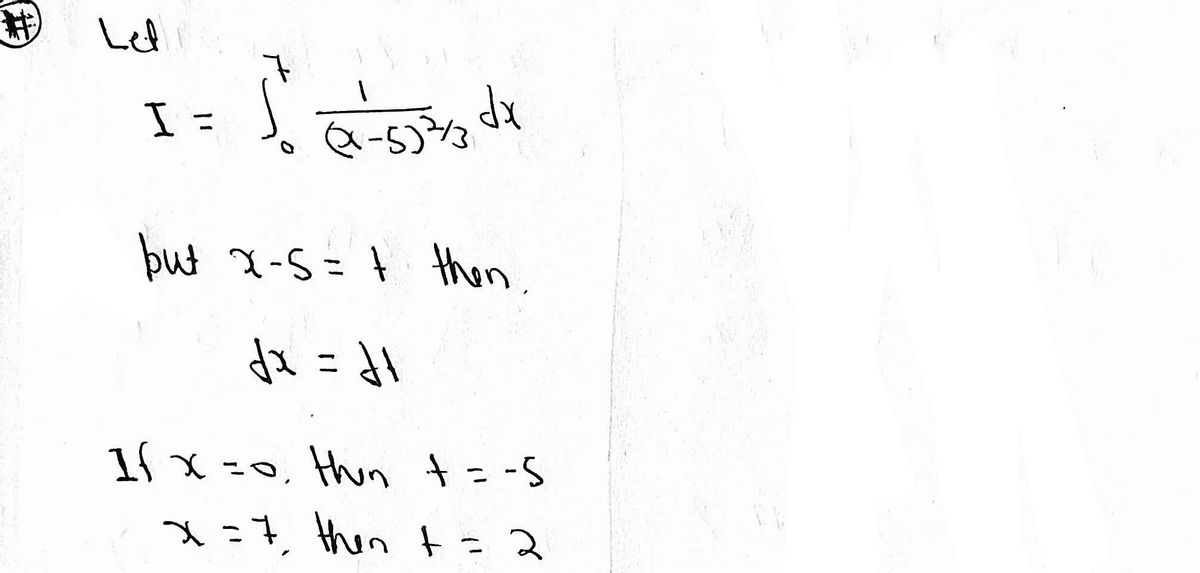 # Let
I = ∫₀⁷ 1/(x-5)^2/3 dx
put x-5 = t then.
dx = dt
If x = 0, then t = -5
x = 7, then t = 2